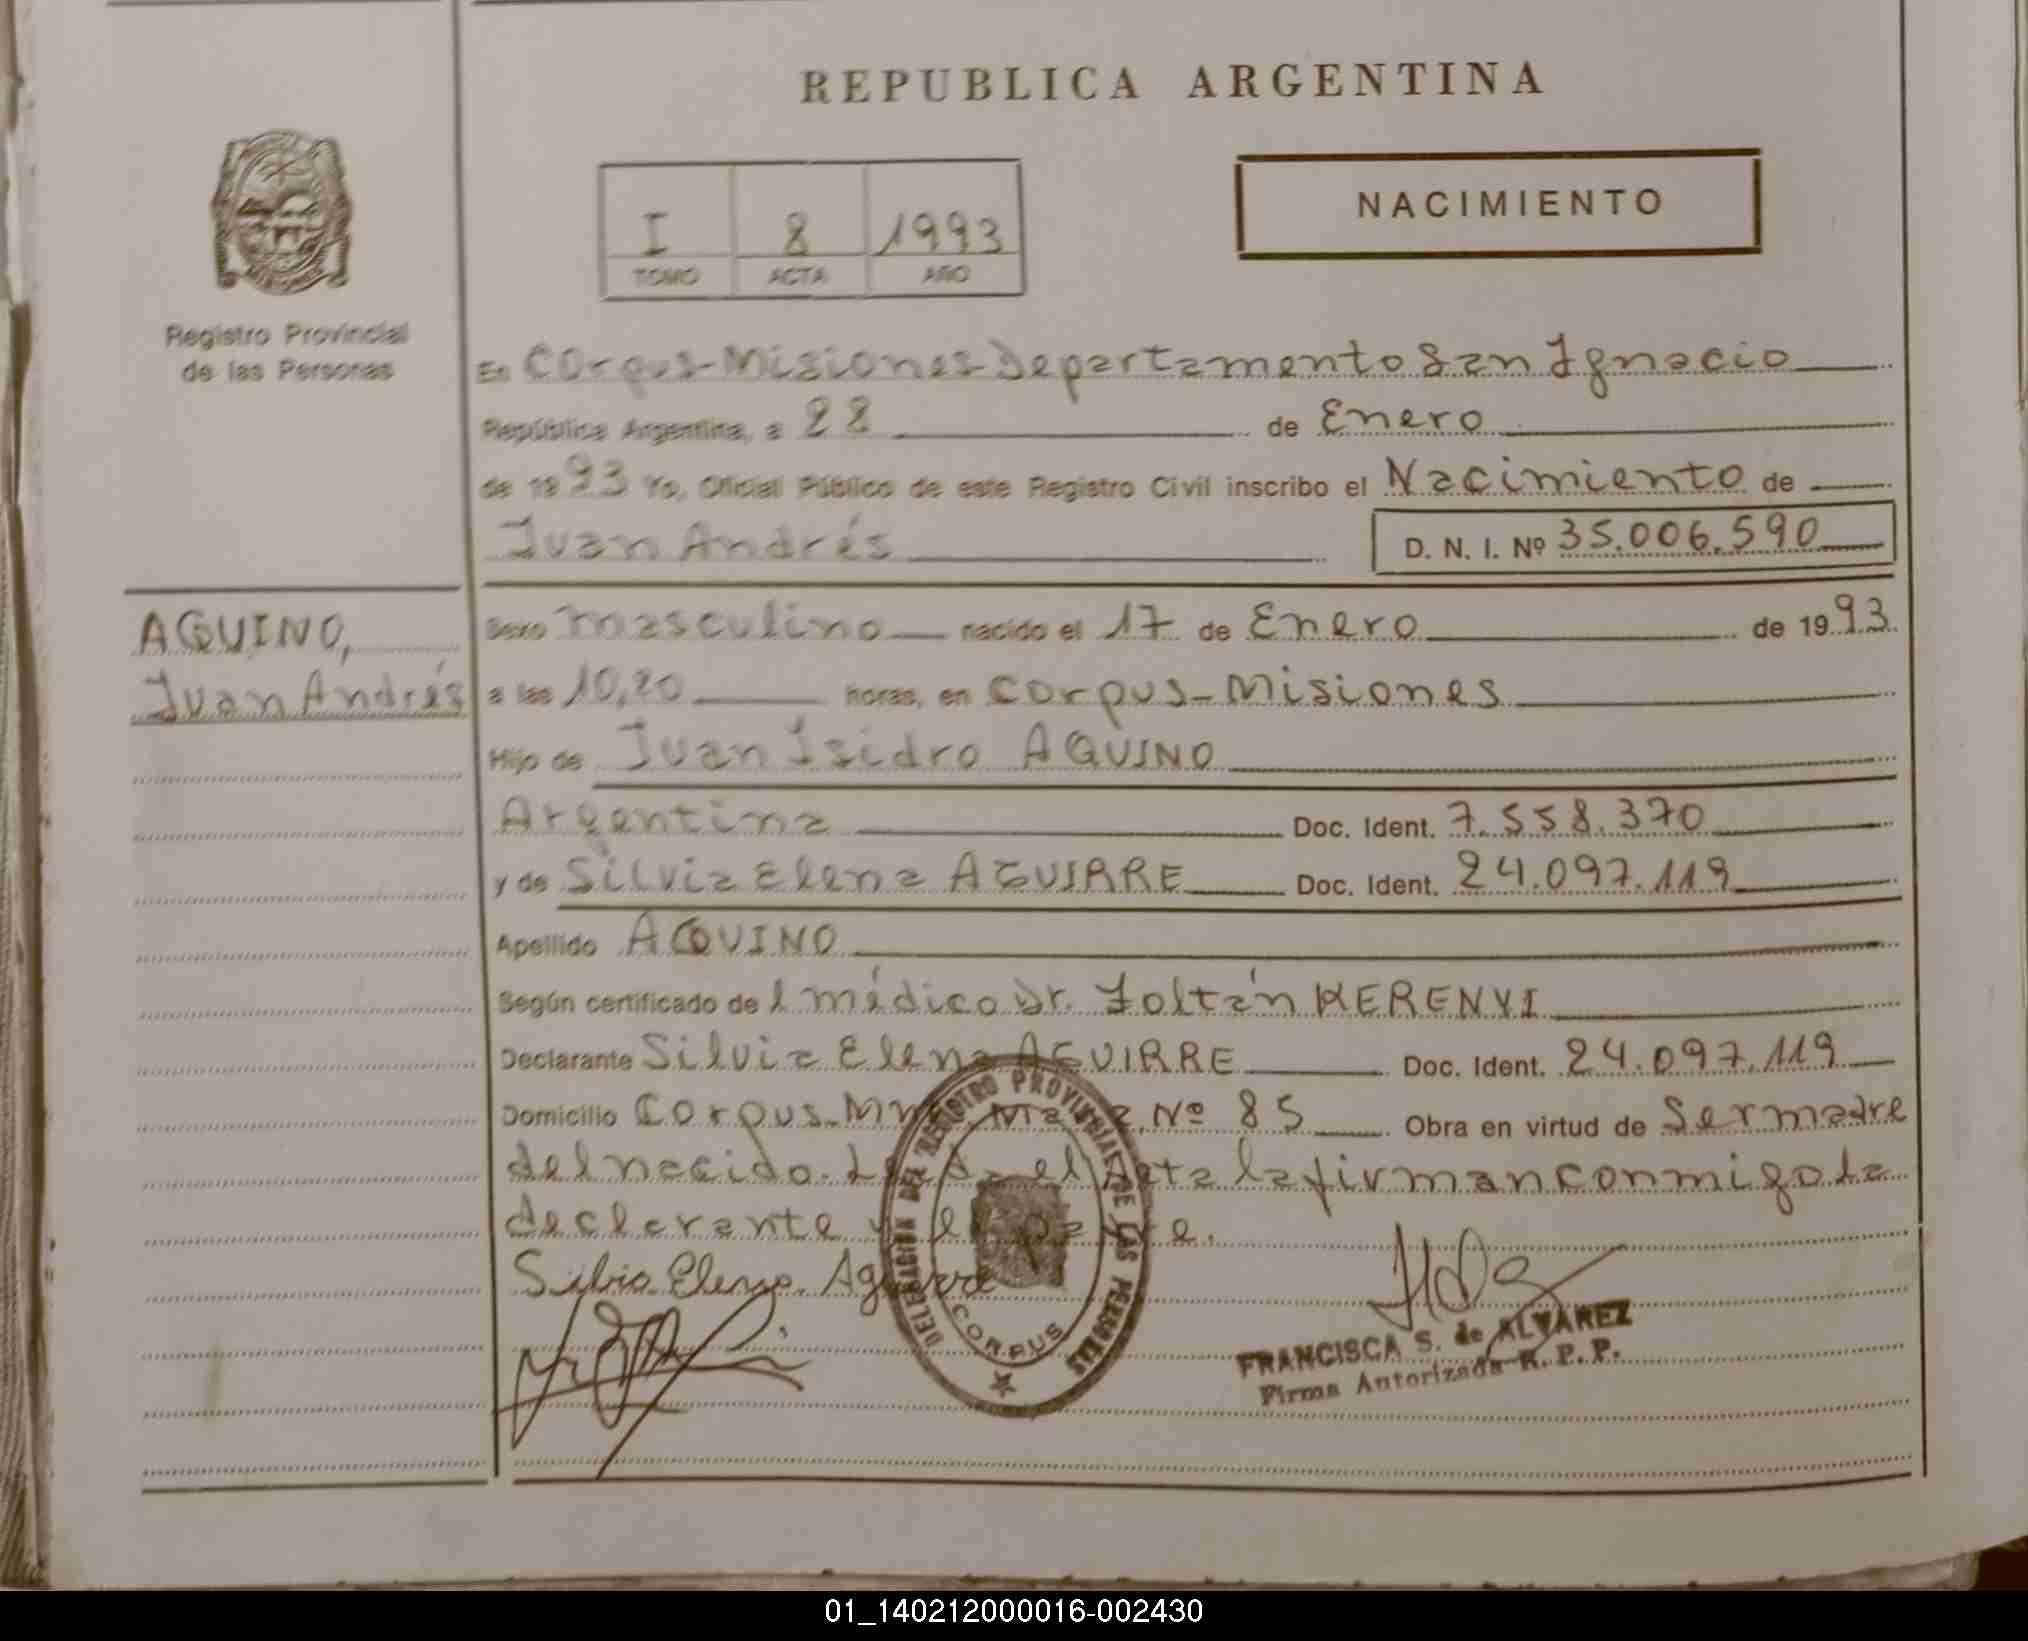 REPUBLICA ARGENTINA
NACIMIENTO
I 8 1993
TOMO ACTA AÑO
Registro Provincial
de las Personas
En Corpus-Misiones-Departamento San Ignacio
República Argentina, a 28 de Enero
de 1993 Yo, Oficial Público de este Registro Civil inscribo el Nacimiento de
Juan Andrés D. N. I. Nº 35.006.590
AQUINO,
Juan Andrés
Sexo masculino nacido el 17 de Enero de 1993
a las 10,20 horas, en Corpus-Misiones
Hijo de Juan Isidro AQUINO
Argentina Doc. Ident. 7.558.370
y de Silvia Elena AGUIRRE Doc. Ident. 24.097.119
Apellido AQUINO
Según certificado del médico Dr. Zoltán KERENYI
Declarante Silvia Elena AGUIRRE Doc. Ident. 24.097.119
Domicilio Corpus-Mnes. Nº 85 Obra en virtud de Ser madre
del nacido. Leída el Acta la firman conmigo la
declarante y el
Silvia Elena Aguirre
DELEGACION DEL REGISTRO PROVINCIAL DE LAS PERSONAS
CORPUS
FRANCISCA S. de ALVAREZ
Firma Autorizada R. P. P.
01_140212000016-002430